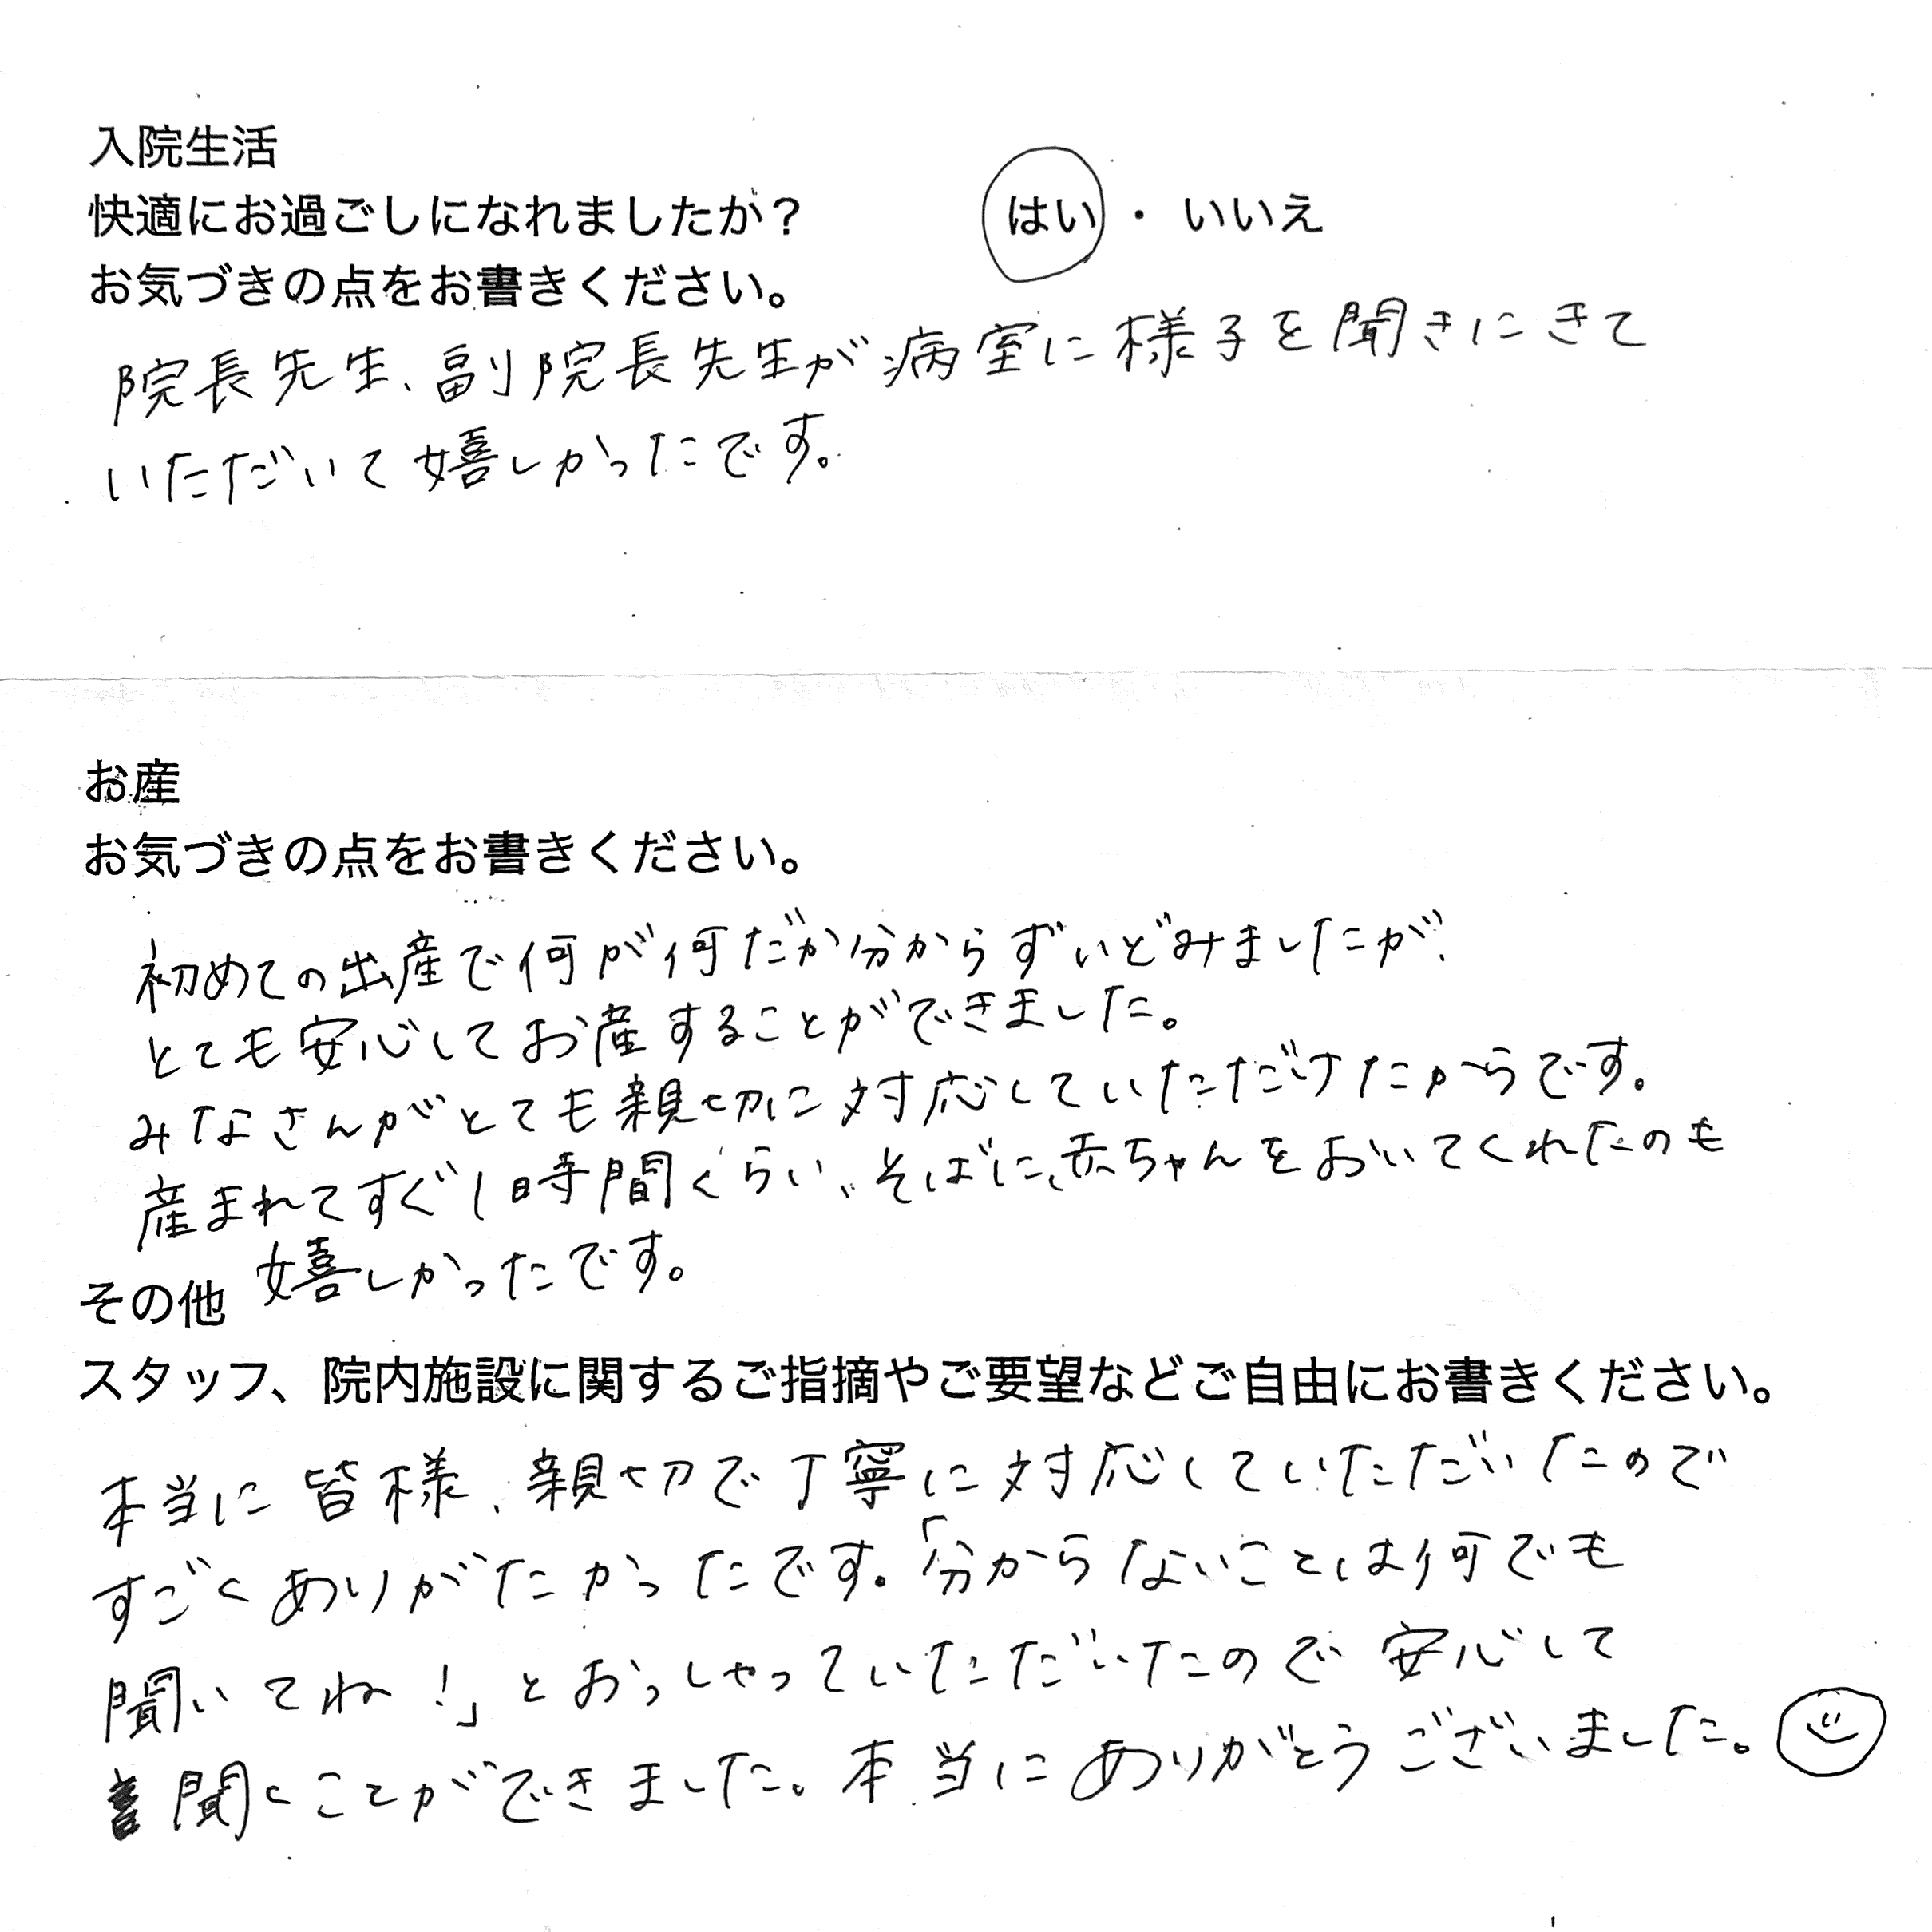 入院生活
快適にお過ごしになれましたか? はい ・ いいえ
お気づきの点をお書きください。
院長先生、副院長先生が病室に様子を聞きにきて
いただいて嬉しかったです。
お産
お気づきの点をお書きください。
初めての出産で何が何だか分からずいどみましたが、
とても安心してお産することができました。
みなさんがとても親切に対応していただけたからです。
産まれてすぐ1時間くらい、そばに、赤ちゃんをおいてくれたのも
嬉しかったです。
その他
スタッフ、院内施設に関するご指摘やご要望などご自由にお書きください。
本当に皆様、親切で丁寧に対応していただいたので
すごくありがたかったです。「分からないことは何でも
聞いてね!」とおっしゃっていただいたので安心して
聞くことができました。本当にありがとうございました。